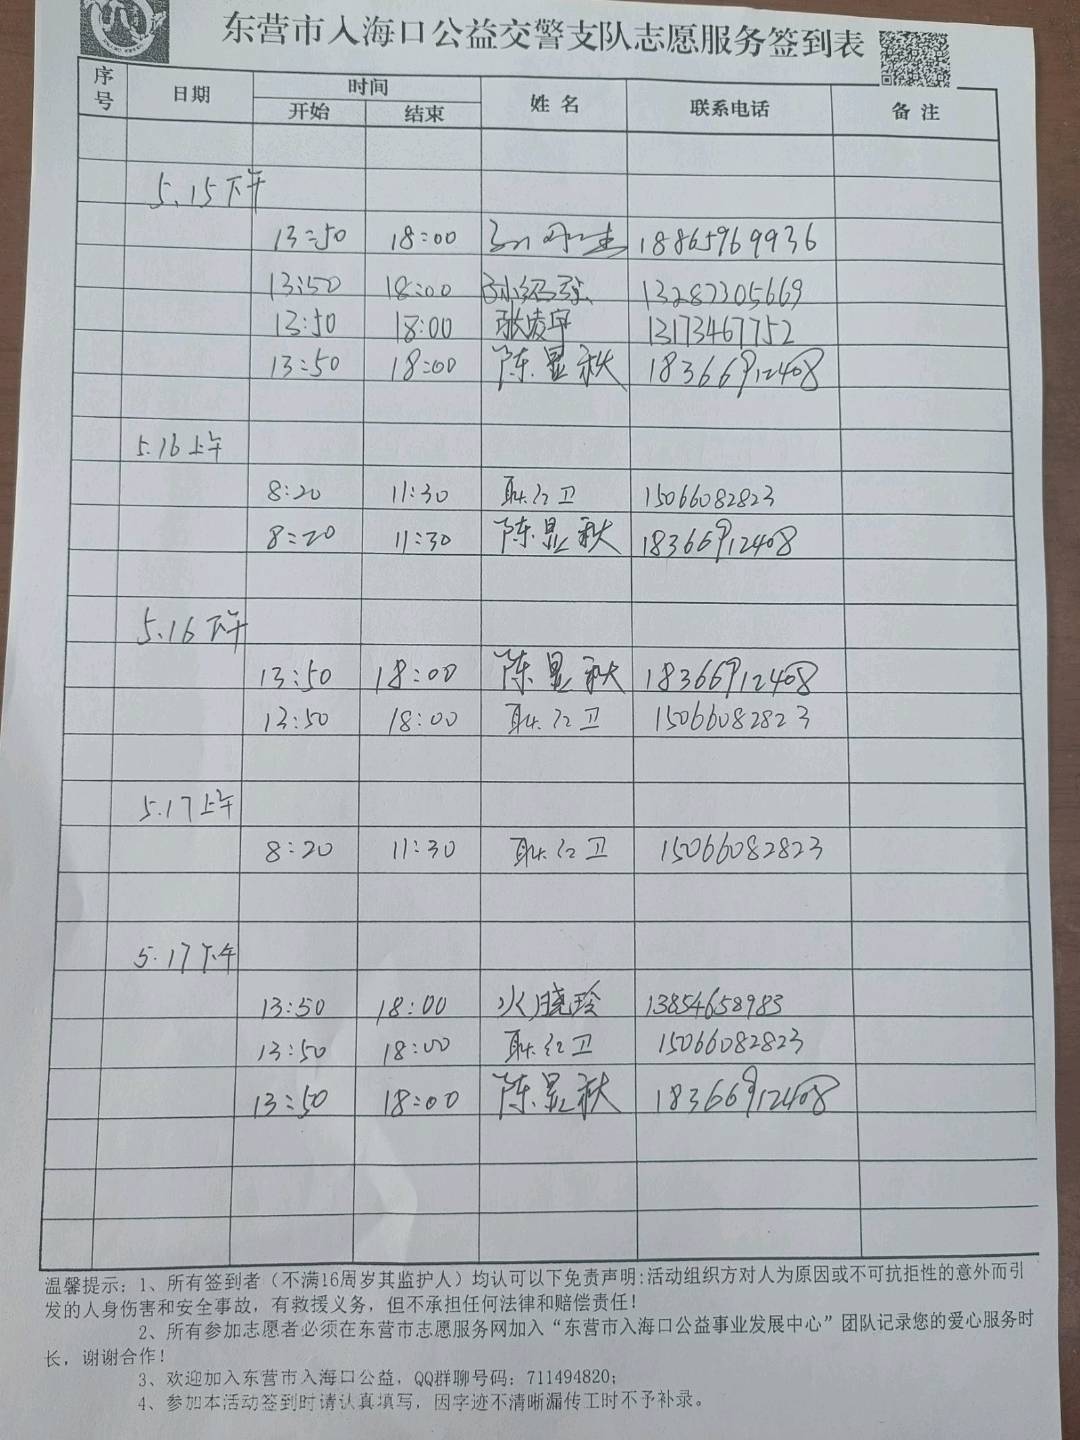 东营市入海口公益交警支队志愿服务签到表
序号 日期 时间 姓名 联系电话 备注
开始 结束
5.15下午
13:50 18:00 18865969936
13:50 18:00 13287305669
13:50 18:00 张凌宇 13173467752
13:50 18:00 陈显秋 18366912408
5.16上午
8:20 11:30 耿红卫 15066082823
8:20 11:30 陈显秋 18366912408
5.16下午
13:50 18:00 陈显秋 18366912408
13:50 18:00 耿红卫 15066082823
5.17上午
8:20 11:30 耿红卫 15066082823
5.17下午
13:50 18:00 晓玲 13854658983
13:50 18:00 耿红卫 15066082823
13:50 18:00 陈显秋 18366912408
温馨提示：1、所有签到者（不满16周岁其监护人）均认可以下免责声明:活动组织方对人为原因或不可抗拒性的意外而引
发的人身伤害和安全事故，有救援义务，但不承担任何法律和赔偿责任！
2、所有参加志愿者必须在东营市志愿服务网加入“东营市入海口公益事业发展中心”团队记录您的爱心服务时
长，谢谢合作！
3、欢迎加入东营市入海口公益，QQ群聊号码：711494820；
4、参加本活动签到时请认真填写，因字迹不清晰漏传工时不予补录。